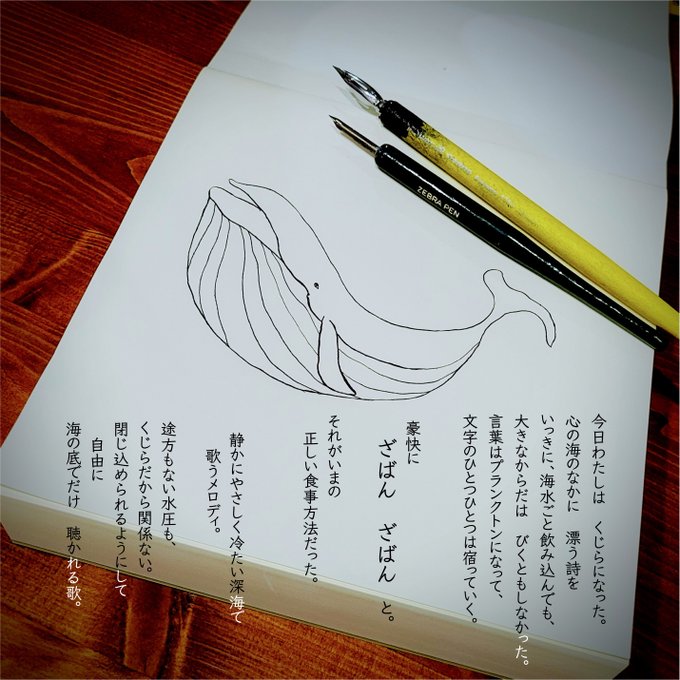 今日わたしは　くじらになった。
心の海のなかに　漂う詩を
いっきに、海水ごと飲み込んでも、
大きなからだは　びくともしなかった。
言葉はプランクトンになって、
文字のひとつひとつは宿っていく。
豪快に
ざばん　ざばん　と。
それがいまの
正しい食事方法だった。
静かにやさしく冷たい深海で
歌うメロディ。
途方もない水圧も、
くじらだから関係ない。
閉じ込められるようにして
自由に
海の底でだけ　聴かれる歌。
ZEBRA PEN